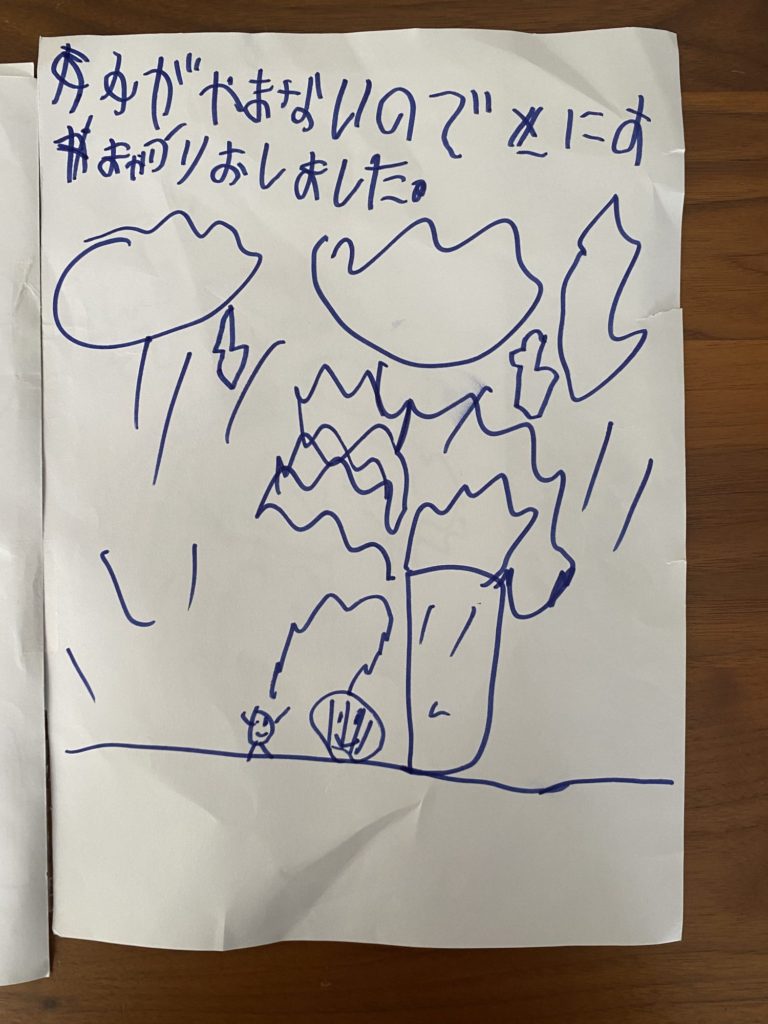 あめがやまないので きにす
まやづりおしました。